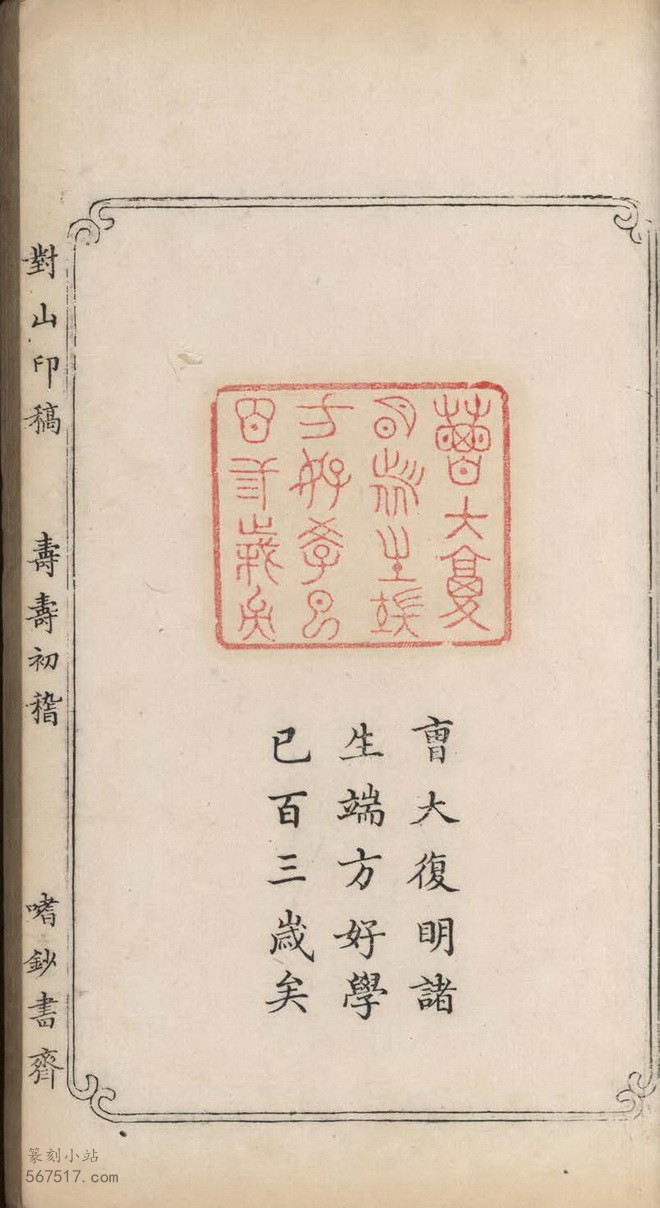 曺大復明諸
生端方好學
已百三歳矣
對山印稿
壽壽初稽
嗜鈔書齊
篆刻小站
567517.com